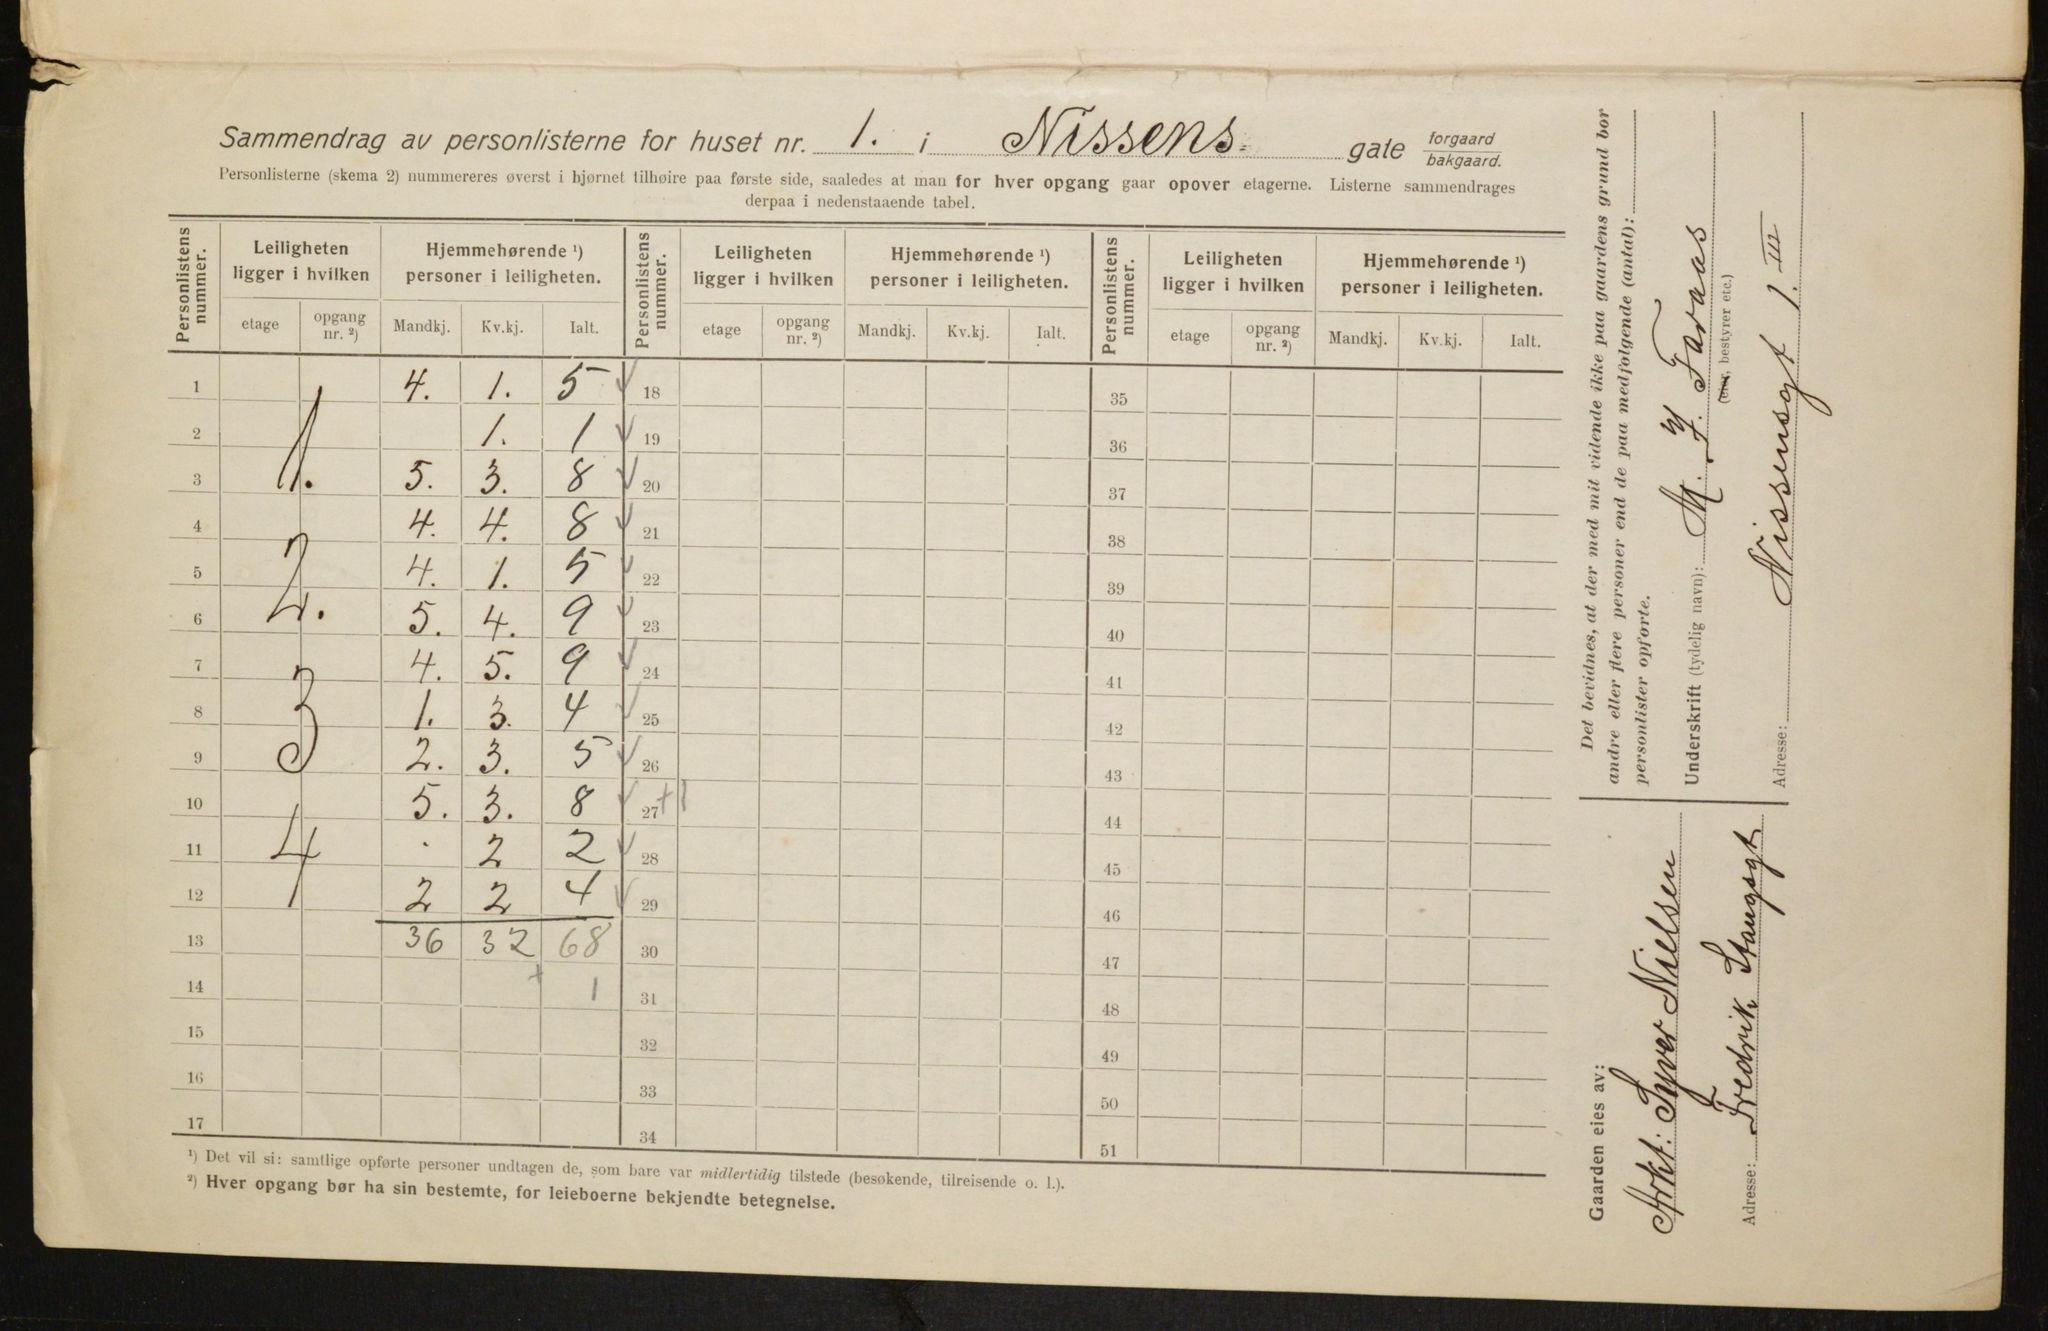 Sammendrag av personlisterne for huset nr. 1. i Nissens gate forgaard bakgaard.
Personlisterne (skema 2) nummereres øverst i hjørnet tilhøire paa første side, saaledes at man for hver opgang gaar opover etagerne. Listerne sammendrages
derpaa i nedenstaaende tabel.
Personlistens nummer. Leiligheten ligger i hvilken Hjemmehørende ¹) personer i leiligheten. Personlistens nummer. Leiligheten ligger i hvilken Hjemmehørende ¹) personer i leiligheten. Personlistens nummer. Leiligheten ligger i hvilken Hjemmehørende ¹) personer i leiligheten.
etage opgang nr. ²) Mandkj. Kv.kj. Ialt. etage opgang nr. ²) Mandkj. Kv.kj. Ialt. etage opgang nr. ²) Mandkj. Kv.kj. Ialt.
1 4. 1. 5 18 35
2 1. 1. 1 19 36
3 5. 3. 8 20 37
4 4. 4. 8 21 38
5 2. 4. 1. 5 22 39
6 5. 4. 9 23 40
7 4. 5. 9 24 41
8 3 1. 3. 4 25 42
9 2. 3. 5 26 43
10 5. 3. 8 27 +1 44
11 4 . 2 2 28 45
12 2 2 4 29 46
13 36 32 68 30 47
14 + 1 31 48
15 32 49
16 33 50
17 34 51
¹) Det vil si: samtlige opførte personer undtagen de, som bare var midlertidig tilstede (besøkende, tilreisende o. l.).
²) Hver opgang bør ha sin bestemte, for leieboerne bekjendte betegnelse.
Det bevidnes, at der med mit vidende ikke paa gaardens grund bor
andre eller flere personer end de paa medfølgende (antal):
personlister opførte.
Underskrift (tydelig navn): M. F. Faraas
(eier, bestyrer etc.)
Adresse: Nissensgt 1. III
Gaarden eies av:
Arkt: Syver Nielsen
Adresse: Fredrik Stangsgt